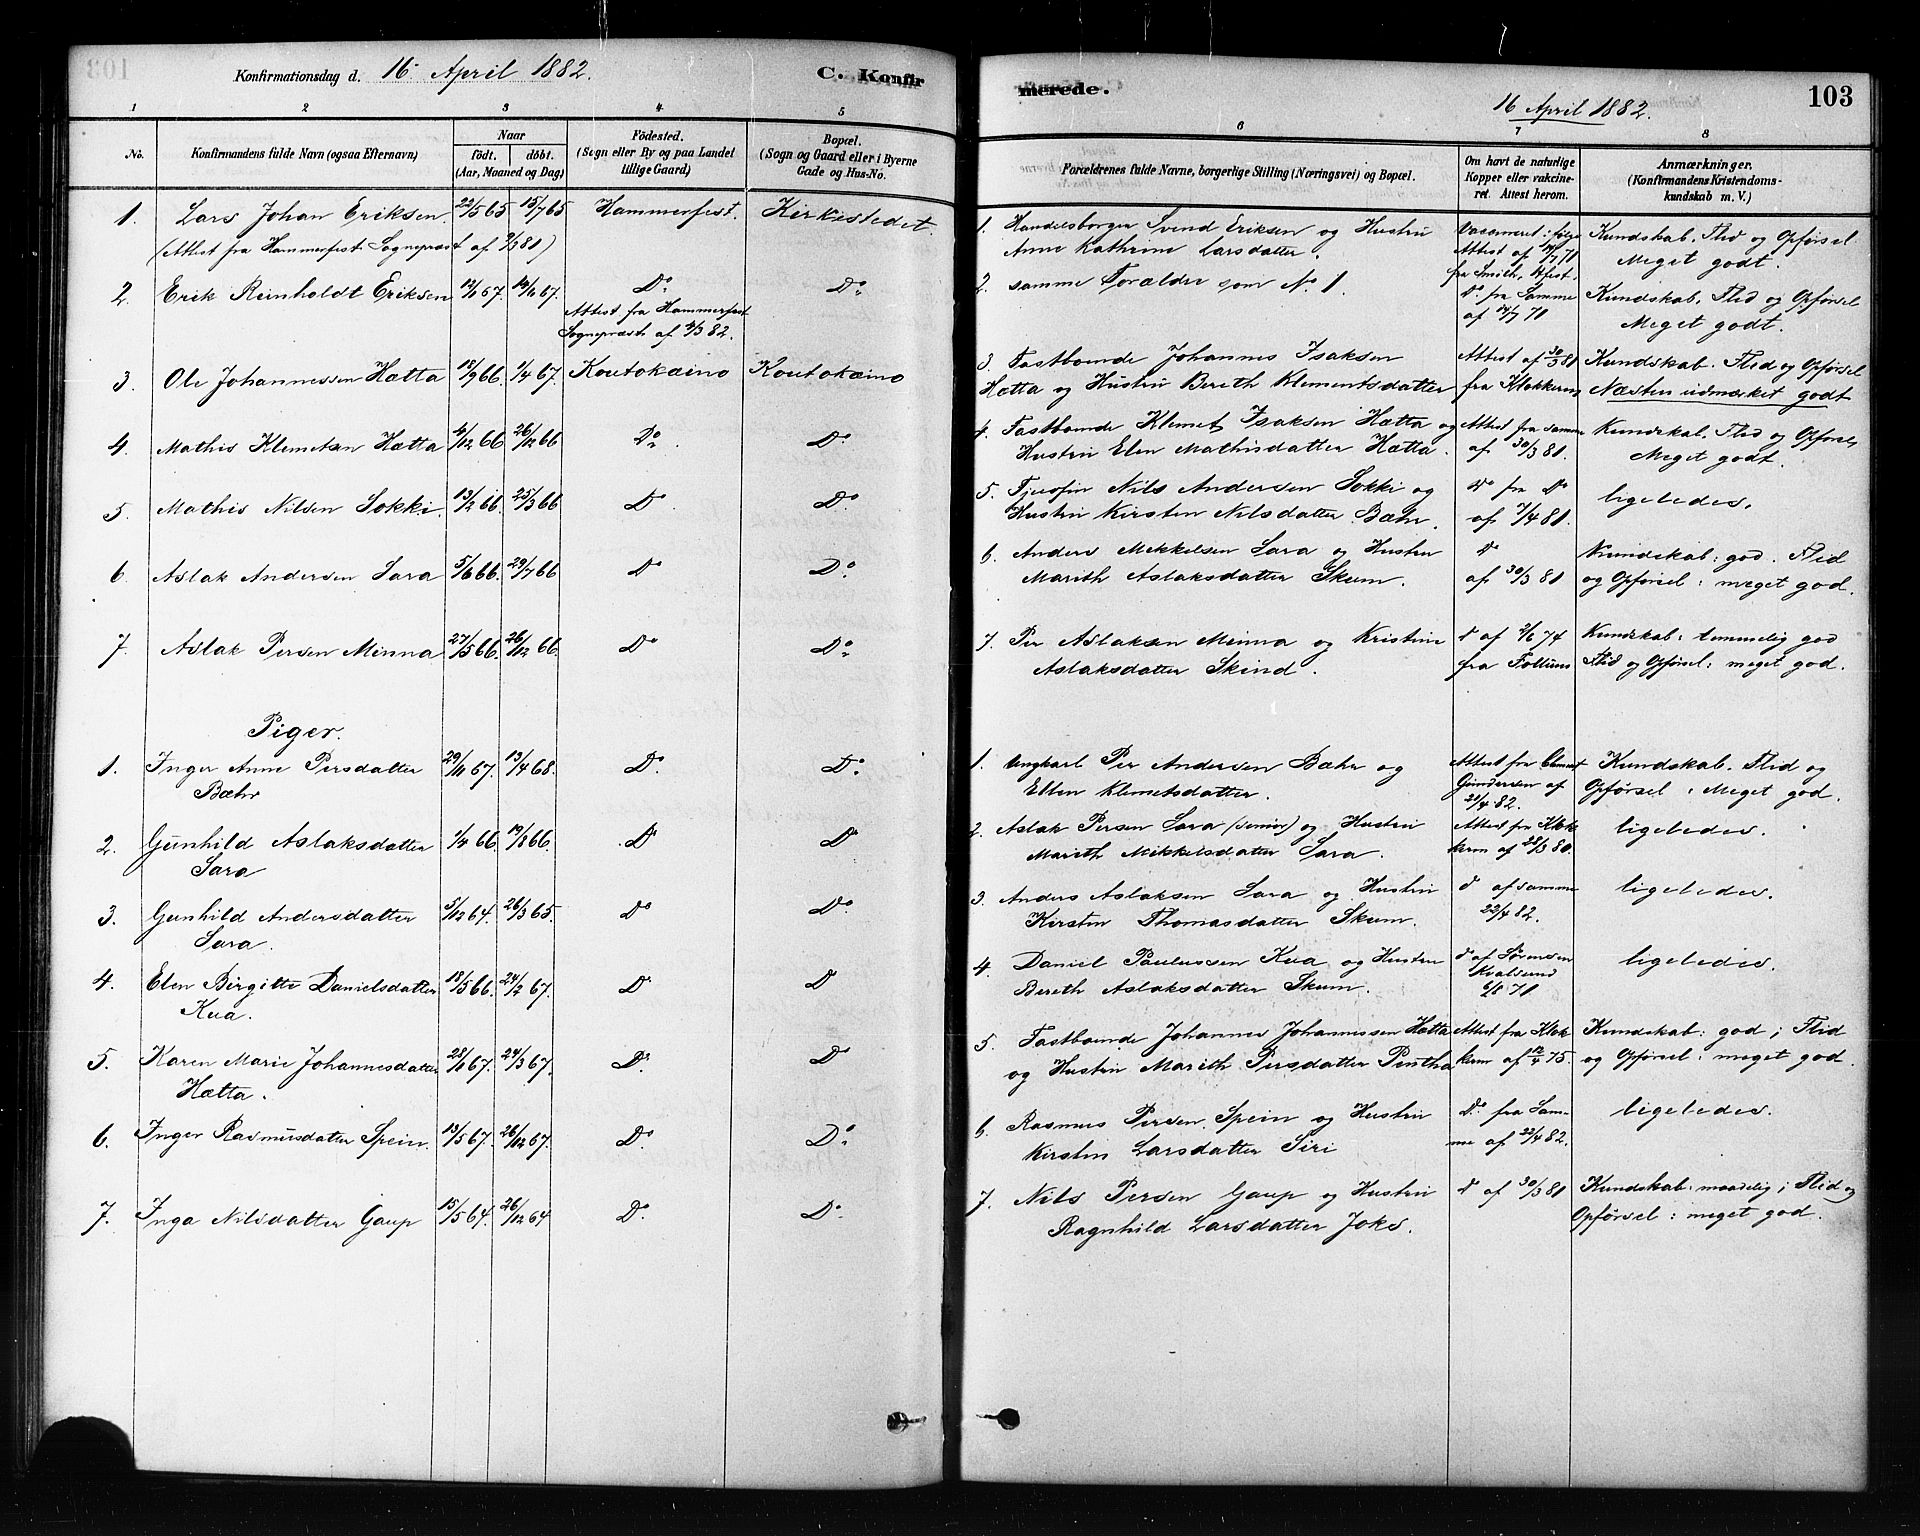 Konfirmationsdag d. 16 April 1882.
C. Konfir
1 2 3 4 5
No.
Konfirmandens fulde Navn (ogsaa Efternavn)
Naar
født. døbt.
(Aar, Maaned og Dag)
Fødested.
(Sogn eller By og paa Landet
tillige Gaard)
Bopæl.
(Sogn og Gaard eller i Byerne
Gade og Hus-No.
1. Lars Johan Eriksen. 22/5 65 15/7 65 Hammerfest. Kirkestedet
(Attest fra Hammerfest Sognepræst af 81)
2. Erik Reinholdt Eriksen 67. 67. Do Do
Attest fra Hammerfest
Sognepræst af 82.
3. Ole Johannessen Hætta 18/9 66. 1/4 67. Koutokæino Koutokæino
4. Mathis Klemetsen Hætta 4/12 66. 26/12 66 Do. Do
5. Mathis Nilsen Sokki. 13/2 66. 25/3 66 Do Do
6. Aslak Andersen Sara 5/6 66. 29/7 66 Do Do.
7. Aslak Persen Minna 27/5 66. 26/12 66. Do Do
Piger.
1. Inger Anne Persdatter 29/11 67. 13/4 68. Do. Do.
Bæhr
2. Gunhild Aslaksdatter 1/4 66. 19/8 66. Do Do
Sara
3. Gunhild Andersdatter 5/12 64. 26/3 65. Do Do.
Sara.
4. Elen Birgitte Danielsdatter 18/5 66. 24/2 67. D. D
Kua.
5. Karen Marie Johannesdatter 28/1 67. 24/3 67. Do. Do
Hætta.
6. Inger Rasmusdatter Spein. 13/5 67. 26/12 67. Do Do
7. Inga Nilsdatter Gaup 15/5 64. 26/12 64 Do. Do
merede.
16 April 1882.
103
6 7 8
Forældrenes fulde Navne, borgerlige Stilling (Næringsvei) og Bopæl.
Om havt de naturlige
Kopper eller vakcine-
ret. Attest herom.
Anmærkninger.
(Konfirmandens Kristendoms-
kundskab m. V.)
1. Handelsborger Svend Eriksen og Hustru Vaccineret ifølge Kundskab. Flid og Opførsel
Anne Kathrine Larsdatter. Attest af 14/7 71 Meget godt.
fra Smith, Hfest.
2. samme Forældre som No 1. Do fra Samme Kundskab. Flid og Opførsel
af 14/7 71 Meget godt.
3. Fastboende Johannes Isaksen Attest af 30/3 81 Kundskab. Flid og Opførsel
Hætta og Hustru Bereth Klementsdatter fra Klokkeren Næsten udmærket godt
4. Fastboende Klemet Isaksen Hætta og Attest fra samme Kundskab. Flid og Opførsel
Hustru Elen Mathisdatter Hætta. af 30/3 81. Meget godt.
5. Fjeldfin Nils Andersen Sokki og Do fra Do ligeledes.
Hustru Kirsten Nilsdatter Bæhr. af 7/4 81.
6. Anders Mikkelsen Sara og Hustru Do Kundskab: god. Flid
Marith Aslaksdatter Skum. af 30/3 81 og Opførsel: meget god.
7. Per Aslaksen Minna og Kristine Do af 2/6 74 Kundskab: temmelig god
Aslaksdatter Skind. fra Flid og Opførsel: meget god.
1. Ungkarl Per Andersen Bæhr og Attest fra Clement Kundskab. Flid og
Ellen Klemetsdatter. Gundersen af Opførsel: Meget god.
21/4 82.
2. Aslak Persen Sara (senior) og Hustru Attest fra Klok- ligeledes.
Marith Mikkelsdatter Sara. keren af 28/3 80.
3. Anders Aslaksen Sara og Hustru Do af samme ligeledes.
Kirsten Thomasdatter Skum. 22/4 82.
4. Daniel Paulussen Kua og Hustru Do af Sørensen ligeledes.
Bereth Aslaksdatter Skum. Kvalsund
71
5. Fastboende Johannes Johannessen Hætta Attest fra Klok- Kundskab: god; Flid
og Hustru Marith Persdatter Pentha keren af 75. og Opførsel: meget god.
6. Rasmus Persen Spein og Hustru Do. fra Sam- ligeledes.
Kirsten Larsdatter Siri me af 22/4 82.
7. Nils Persen Gaup og Hustru Do af 30/3 81 Kundskab: maadelig; Flid og
Ragnhild Larsdatter Joks. Opførsel: meget god.